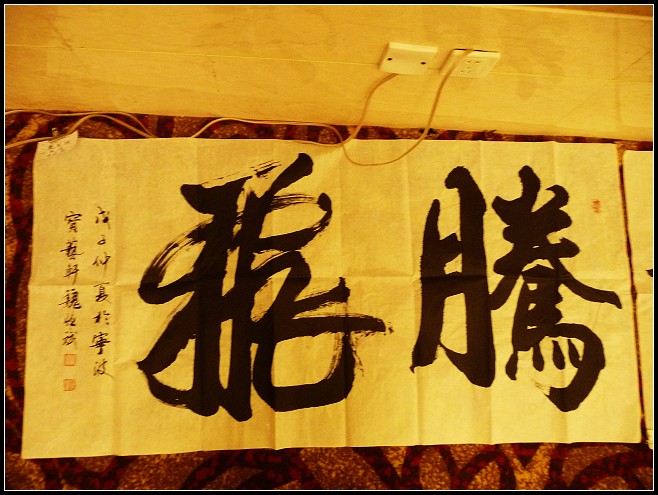 騰飛
戊子仲夏於寧波
寶藝軒魏